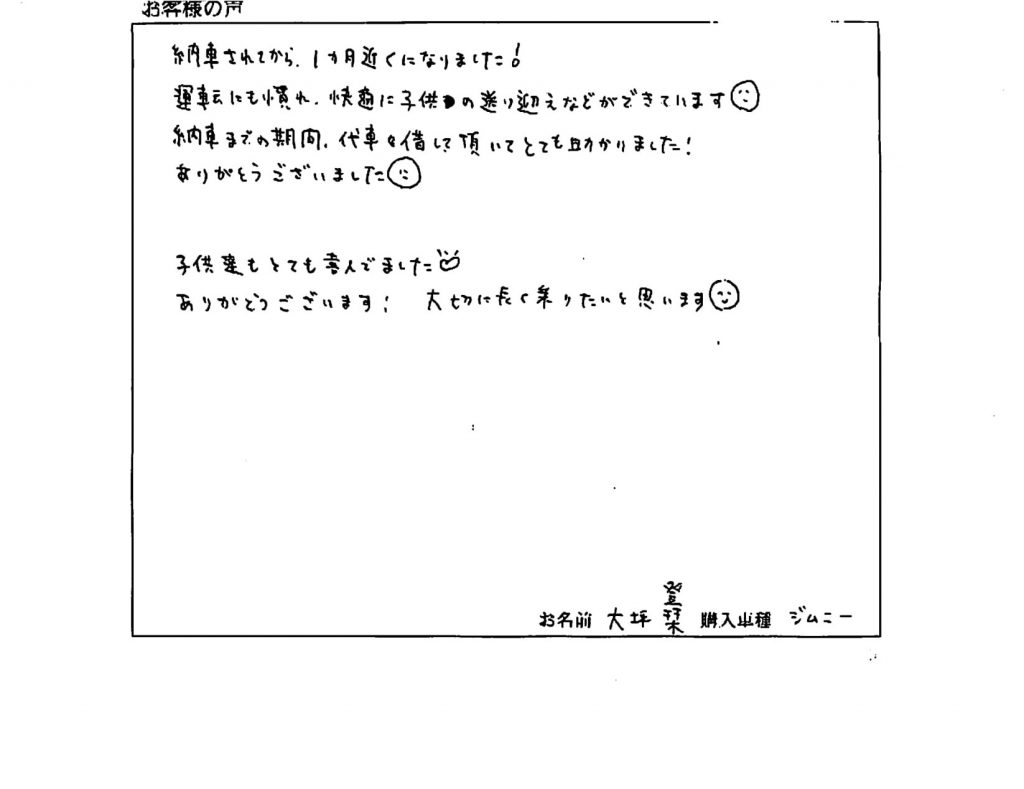 お客様の声
納車されてから、1ヵ月近くになりました!
運転にも慣れ、快適に子供の送り迎えなどができています
納車までの期間、代車を借して頂いてとても助かりました!
ありがとうございました
子供達もとても喜んでました
ありがとうございます! 大切に長く乗りたいと思います
お名前 大坪 登 購入車種 ジムニー